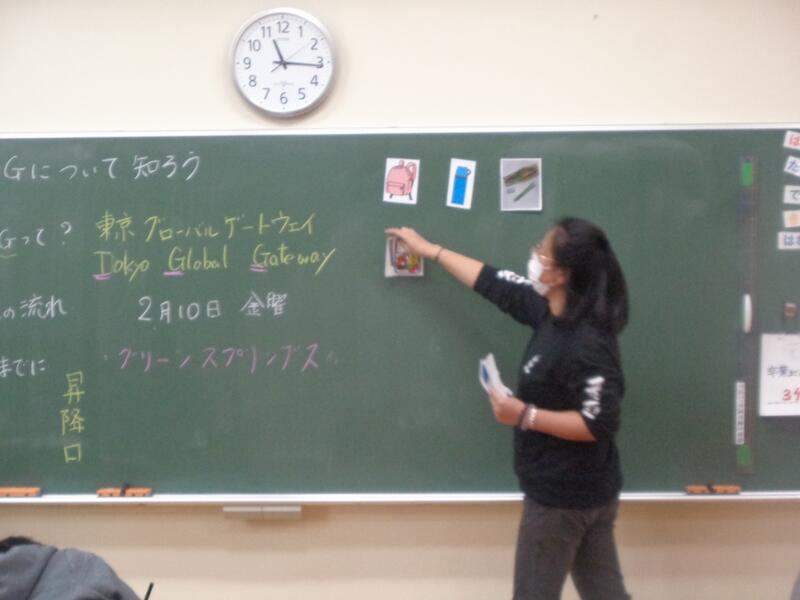 Gについて知ろう
Gって? 東京グローバルゲートウェイ
Tokyo Global Gateway
の流れ 2月10日 金曜
までに グリーンスプリングス
昇降口
12
1
2
3
4
5
6
7
8
9
10
11
は
た
で